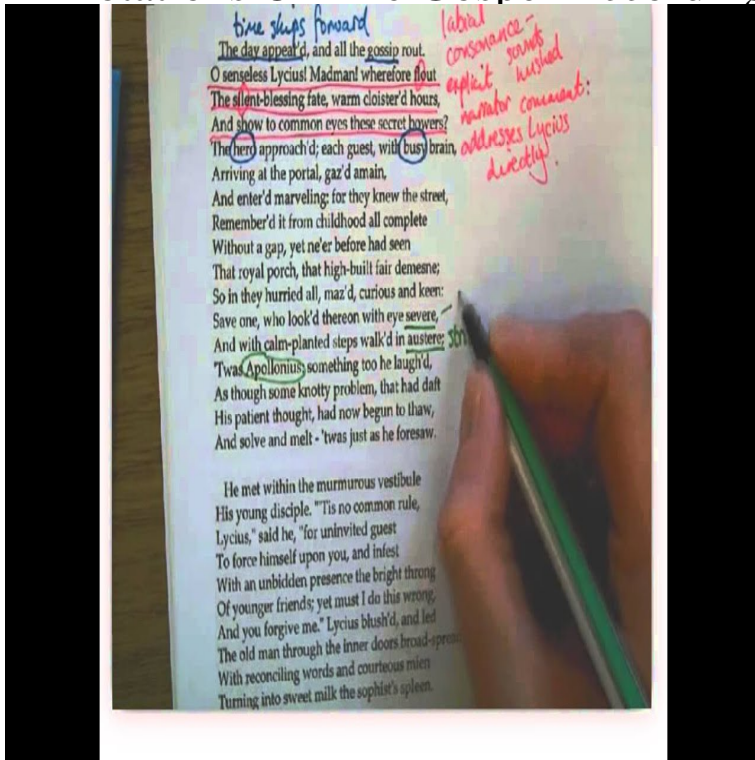 time skips forward
The day appear'd, and all the gossip rout.
O senseless Lycius! Madman! wherefore flout
The silent-blessing fate, warm cloister'd hours,
And show to common eyes these secret bowers?
The herd approach'd; each guest, with busy brain,
Arriving at the portal, gaz'd amain,
And enter'd marveling: for they knew the street,
Remember'd it from childhood all complete
Without a gap, yet ne'er before had seen
That royal porch, that high-built fair demesne;
So in they hurried all, maz'd, curious and keen:
Save one, who look'd thereon with eye severe,
And with calm-planted steps walk'd in austere;
'Twas Apollonius: something too he laugh'd,
As though some knotty problem, that had daft
His patient thought, had now begun to thaw,
And solve and melt - 'twas just as he foresaw.
He met within the murmurous vestibule
His young disciple. "'Tis no common rule,
Lycius," said he, "for uninvited guest
To force himself upon you, and infest
With an unbidden presence the bright throng
Of younger friends; yet must I do this wrong,
And you forgive me." Lycius blush'd, and led
The old man through the inner doors broad-spread
With reconciling words and courteous mien
Turning into sweet milk the sophist's spleen.
labial
consonance -
sounds
hushed
explicit
narrator comment:
addresses Lycius
directly.